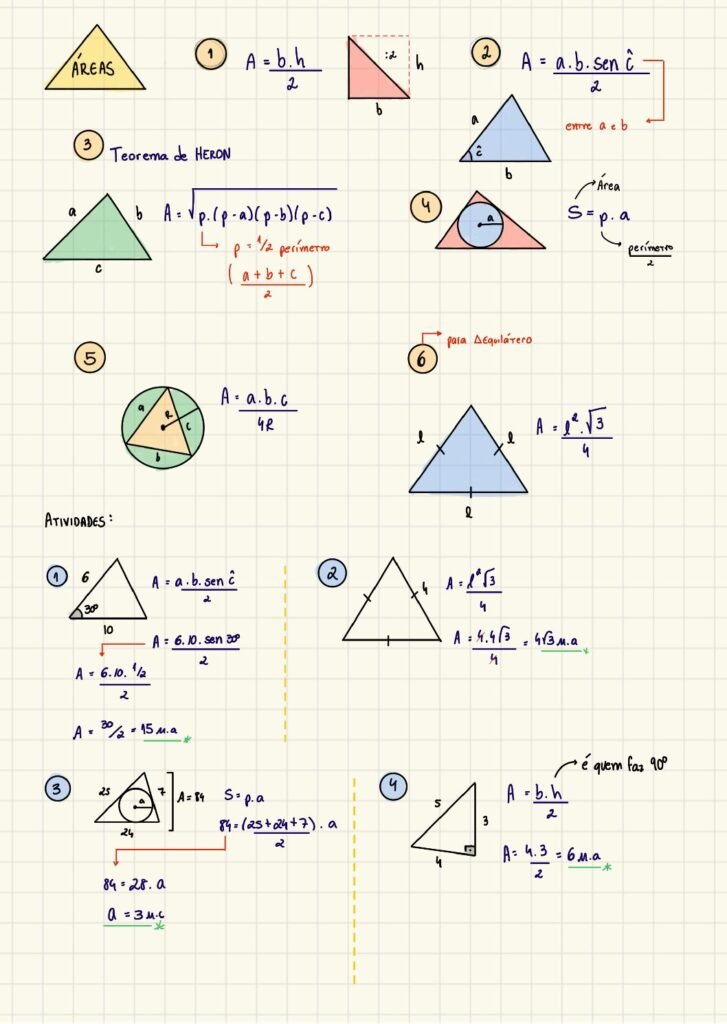 ÁREAS
1
A = b.h
2
:2
h
b
2
A = a.b.sen ĉ
2
entre a e b
a
ĉ
b
3
Teorema de HERON
a
b
c
A = √p.(p-a)(p-b)(p-c)
p = 1/2 perímetro
(a+b+c)
2
4
a
Área
S = p.a
perímetro
2
5
a
R
c
b
A = a.b.c
4R
6
para Δequilátero
l
l
l
A = l².√3
4
ATIVIDADES:
1
6
30º
10
A = a.b.sen ĉ
2
A = 6.10.sen 30º
2
A = 6.10.1/2
2
A = 30/2 = 15 u.a *
2
4
A = l²√3
4
A = 4.4√3 = 4√3 u.a *
4
3
25
7
a
24
A = 84
S = p.a
84 = (25+24+7).a
2
84 = 28.a
a = 3 u.c *
4
5
3
4
é quem faz 90º
A = b.h
2
A = 4.3 = 6 u.a *
2